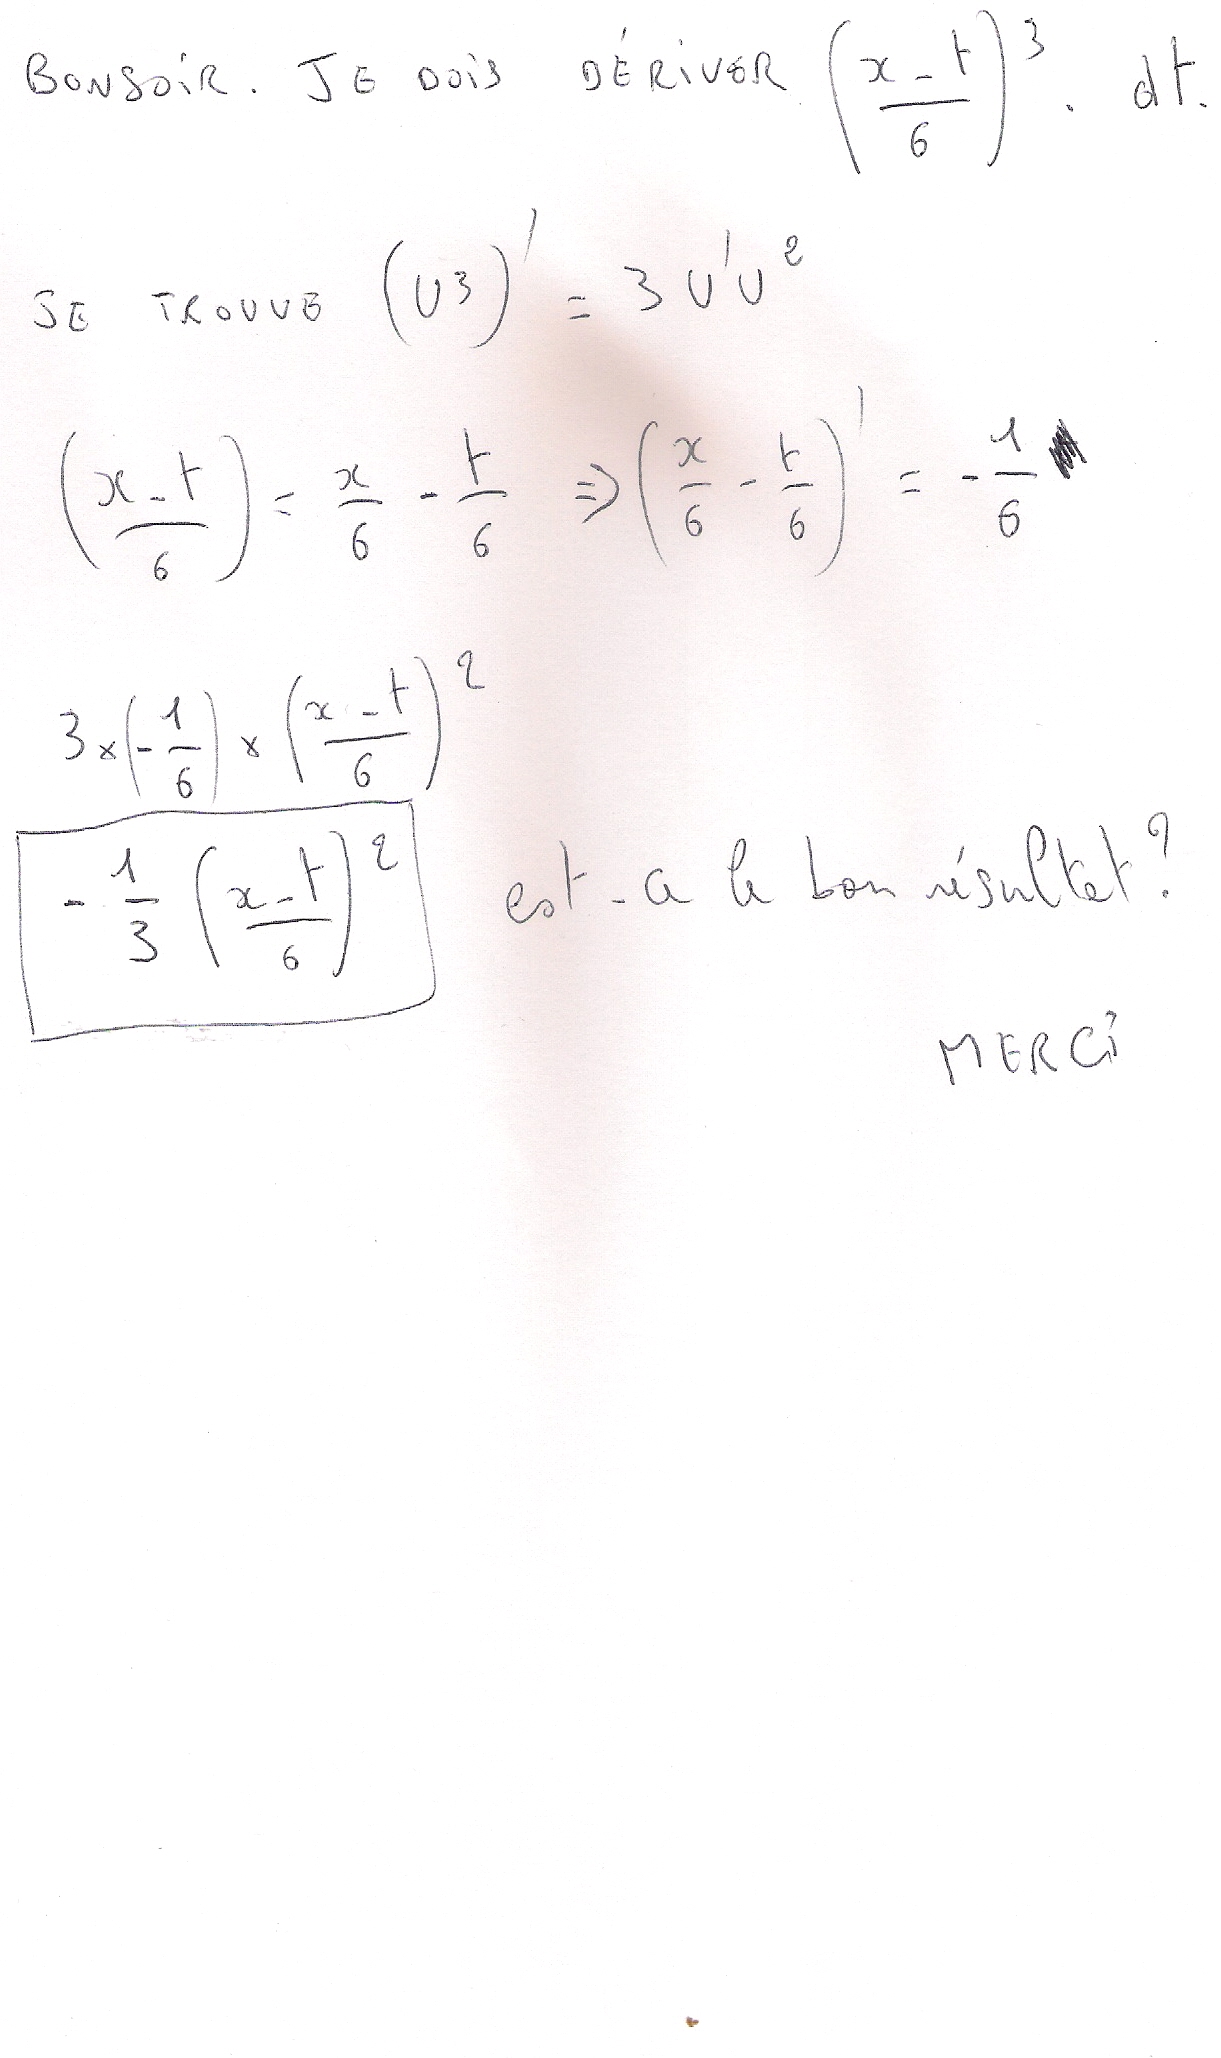 BONSOIR. JE DOIS DÉRIVER ((x - t)/6)^3 . dt.
JE TROUVE (U3)' = 3 U'U^2
((x - t)/6) = x/6 - t/6 => (x/6 - t/6)' = - 1/6
3 x (- 1/6) x ((x - t)/6)^2
- 1/3 ((x - t)/6)^2 est-ce le bon résultat ?
MERCi